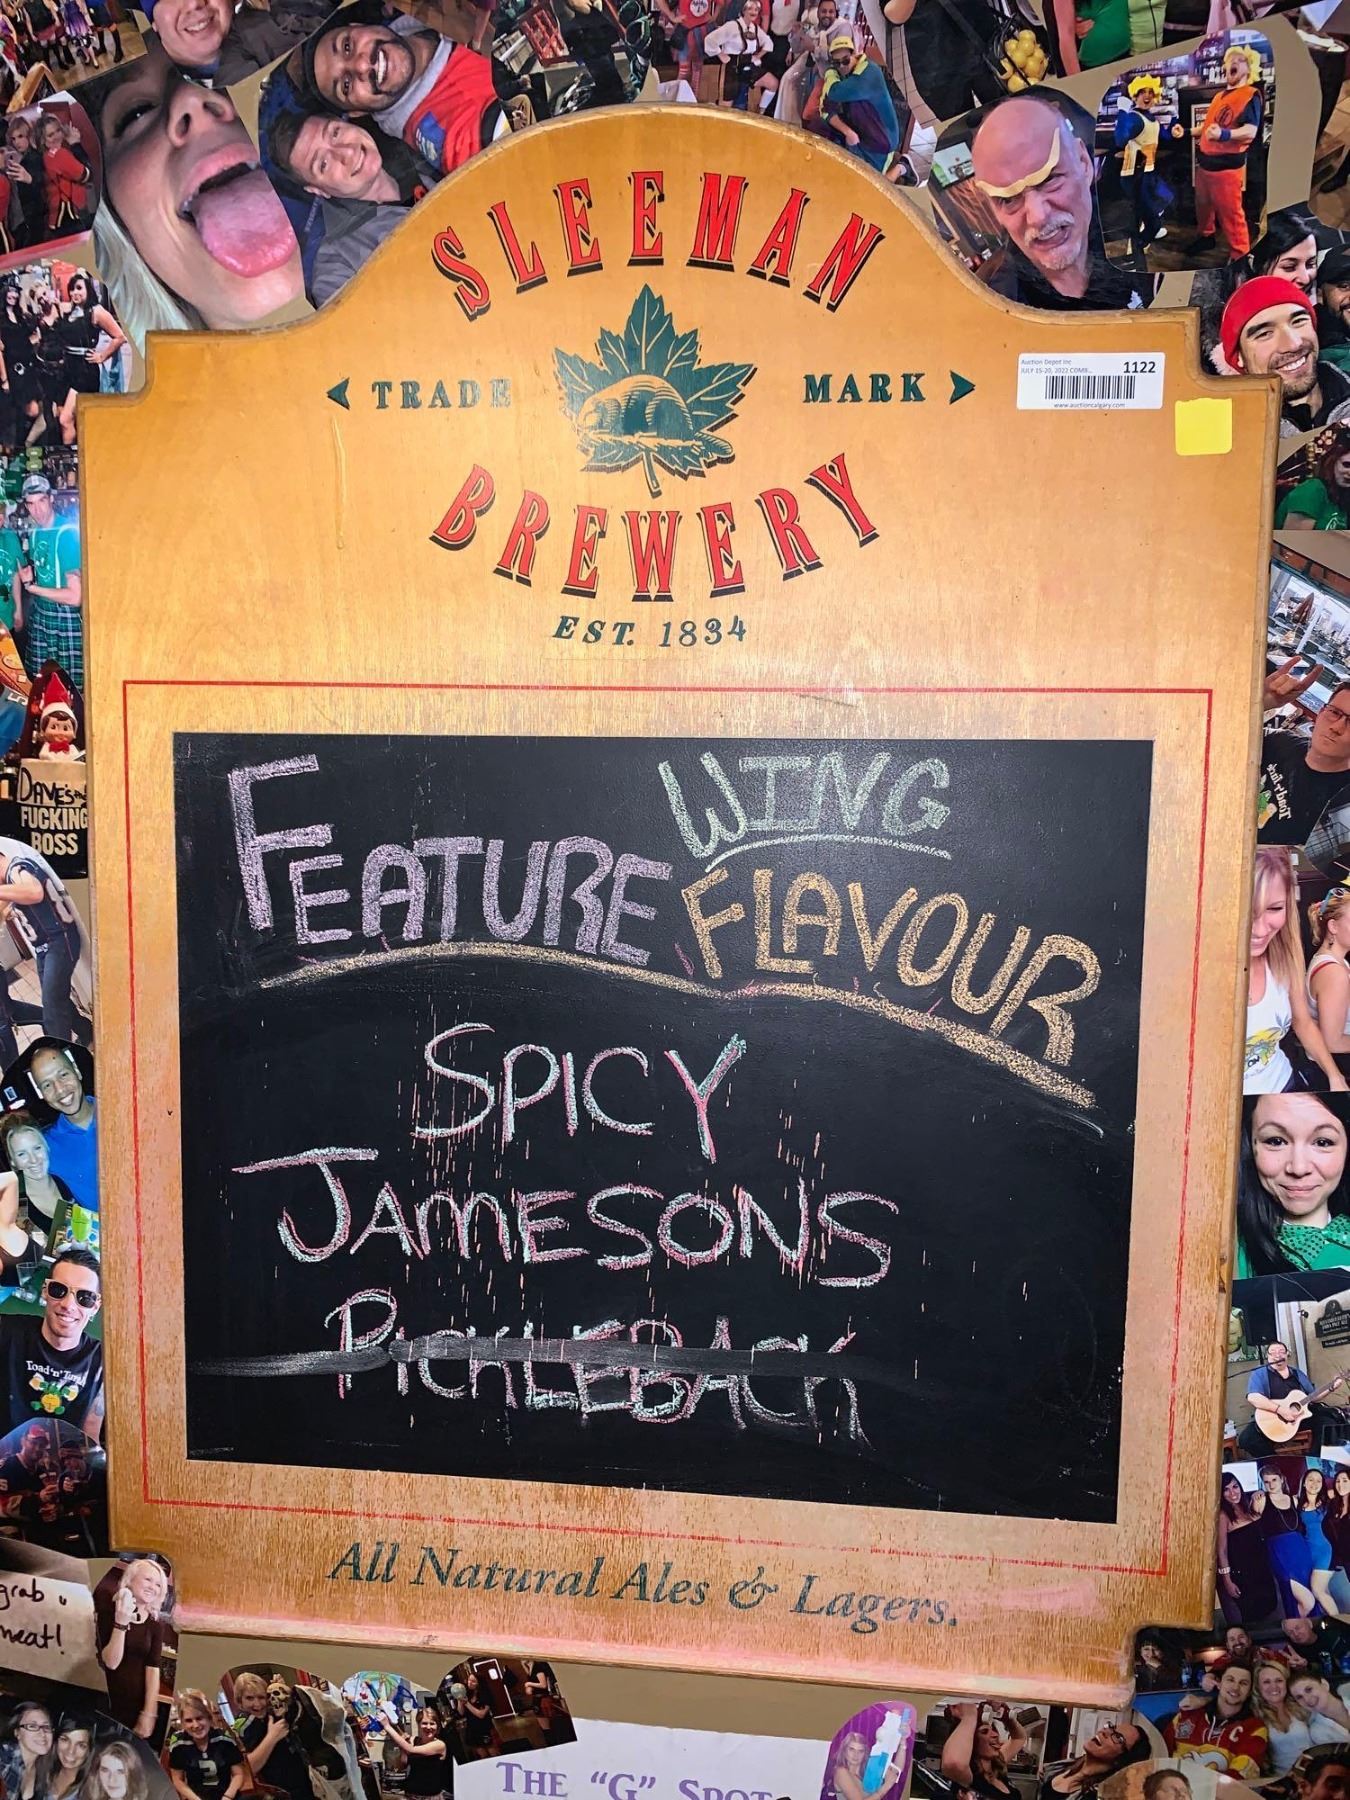 SLEEMAN
TRADE MARK
BREWERY
EST. 1834
Auction Depot Inc
JULY 15-20, 2022 COMB...
1122
www.auctioncalgary.com
WING
FEATURE FLAVOUR
SPICY
JAMESONS
PICKLEBACK
All Natural Ales & Lagers.
DAVE'S
FUCKING
BOSS
Toad 'n' Turtle
grab
meat!
THE "G" SPOT